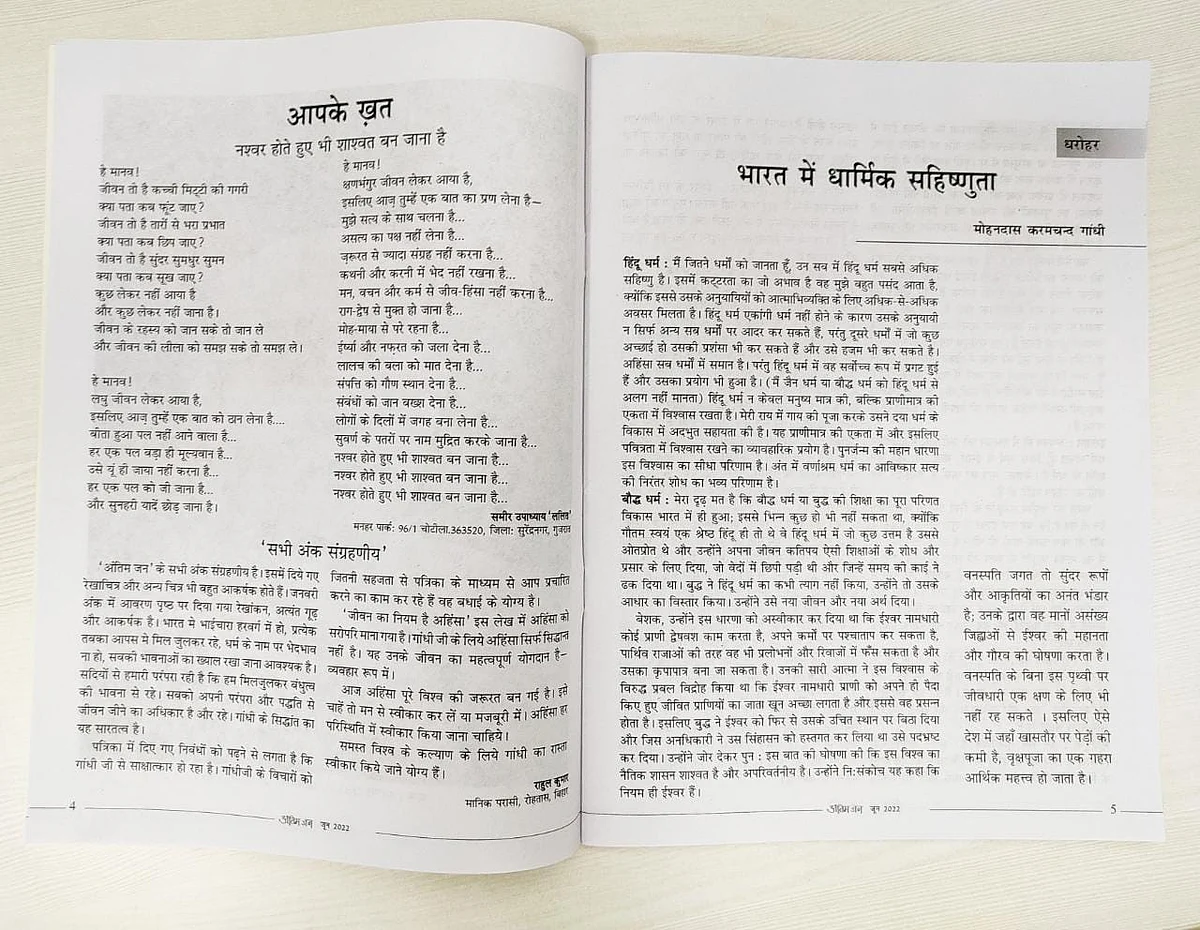 आपके ख़त
नश्वर होते हुए भी शाश्वत बन जाना है
हे मानव!
जीवन तो है कच्ची मिट्टी की गगरी
क्या पता कब फूंट जाए?
जीवन तो है तारों से भरा प्रभात
क्या पता कब छिप जाए?
जीवन तो है सुंदर सुमधुर सुमन
क्या पता कब सूख जाए?
कुछ लेकर नहीं आया है
और कुछ लेकर नहीं जाना है।
जीवन के रहस्य को जान सके तो जान ले
और जीवन की लीला को समझ सके तो समझ ले।
हे मानव!
लघु जीवन लेकर आया है,
इसलिए आज़ तुम्हें एक बात को ठान लेना है....
बीता हुआ पल नहीं आने वाला है...
हर एक पल बड़ा ही मूल्यवान है...
उसे यूं ही जाया नहीं करना है...
हर एक पल को जी जाना है...
और सुनहरी यादें छोड़ जाना है।
हे मानव!
क्षणभंगुर जीवन लेकर आया है,
इसलिए आज़ तुम्हें एक बात का प्रण लेना है–
मुझे सत्य के साथ चलना है...
असत्य का पक्ष नहीं लेना है...
ज़रूरत से ज्यादा संग्रह नहीं करना है...
कथनी और करनी में भेद नहीं रखना है...
मन, वचन और कर्म से जीव-हिंसा नहीं करना है...
राग-द्वेष से मुक्त हो जाना है...
मोह-माया से परे रहना है...
ईर्ष्या और नफ़रत को जला देना है...
लालच की बला को मात देना है...
संपत्ति को गौण स्थान देना है...
संबंधों को जान बख़्श देना है...
लोगों के दिलों में जगह बना लेना है...
सुवर्ण के पतरों पर नाम मुद्रित करके जाना है...
नश्वर होते हुए भी शाश्वत बन जाना है...
नश्वर होते हुए भी शाश्वत बन जाना है...
नश्वर होते हुए भी शाश्वत बन जाना है...
समीर उपाध्याय 'ललित'
मनहर पार्क: 96/1 चोटीला.363520, जिला: सुरेंद्रनगर, गुजरात
'सभी अंक संग्रहणीय'
'अंतिम जन' के सभी अंक संग्रहणीय है। इसमें दिये गए
रेखाचित्र और अन्य चित्र भी बहुत आकर्षक होते हैं। जनवरी
अंक में आवरण पृष्ठ पर दिया गया रेखांकन, अत्यंत गूढ़
और आकर्षक है। भारत मे भाईचारा हरवर्ग में हो, प्रत्येक
तबका आपस मे मिल जुलकर रहे, धर्म के नाम पर भेदभाव
ना हो, सबकी भावनाओं का ख्याल रखा जाना आवश्यक है।
सदियों से हमारी परंपरा रही है कि हम मिलजुलकर बंधुत्व
की भावना से रहे। सबको अपनी परंपरा और पद्धति से
जीवन जीने का अधिकार है और रहे। गांधी के सिद्धांत का
यह सारतत्व है।
पत्रिका में दिए गए निबंधों को पढ़ने से लगता है कि
गांधी जी से साक्षात्कार हो रहा है। गांधीजी के विचारों को
जितनी सहजता से पत्रिका के माध्यम से आप प्रचारित
करने का काम कर रहे हैं वह बधाई के योग्य है।
'जीवन का नियम है अहिंसा' इस लेख में अहिंसा को
सरोपरि माना गया है। गांधी जी के लिये अहिंसा सिर्फ सिद्धान्त
नहीं है। यह उनके जीवन का महत्वपूर्ण योगदान है–
व्यवहार रूप में।
आज अहिंसा पूरे विश्व की जरूरत बन गई है। इसे
चाहें तो मन से स्वीकार कर लें या मजबूरी में। अहिंसा हर
परिस्थिति में स्वीकार किया जाना चाहिये।
समस्त विश्व के कल्याण के लिये गांधी का रास्ता
स्वीकार किये जाने योग्य हैं।
राहुल कुमार
मानिक परासी, रोहतास, बिहार
4
अंतिम जन जून 2022
धरोहर
भारत में धार्मिक सहिष्णुता
मोहनदास करमचन्द गांधी
हिंदू धर्म : मैं जितने धर्मों को जानता हूँ, उन सब में हिंदू धर्म सबसे अधिक
सहिष्णु है। इसमें कट्टरता का जो अभाव है वह मुझे बहुत पसंद आता है,
क्योंकि इससे उसके अनुयायियों को आत्माभिव्यक्ति के लिए अधिक-से-अधिक
अवसर मिलता है। हिंदू धर्म एकांगी धर्म नहीं होने के कारण उसके अनुयायी
न सिर्फ अन्य सब धर्मों पर आदर कर सकते हैं, परंतु दूसरे धर्मों में जो कुछ
अच्छाई हो उसकी प्रशंसा भी कर सकते हैं और उसे हजम भी कर सकते है।
अहिंसा सब धर्मों में समान है। परंतु हिंदू धर्म में वह सर्वोच्च रूप में प्रगट हुई
हैं और उसका प्रयोग भी हुआ है। (मैं जैन धर्म या बौद्ध धर्म को हिंदू धर्म से
अलग नहीं मानता) हिंदू धर्म न केवल मनुष्य मात्र की, बल्कि प्राणीमात्र की
एकता में विश्वास रखता है। मेरी राय में गाय की पूजा करके उसने दया धर्म के
विकास में अदभुत सहायता की है। यह प्राणीमात्र की एकता में और इसलिए
पवित्रता में विश्वास रखने का व्यावहारिक प्रयोग है। पुनर्जन्म की महान धारणा
इस विश्वास का सीधा परिणाम है। अंत में वर्णाश्रम धर्म का आविष्कार सत्य
की निरंतर शोध का भव्य परिणाम है।
बौद्ध धर्म : मेरा दृढ़ मत है कि बौद्ध धर्म या बुद्ध की शिक्षा का पूरा परिणत
विकास भारत में ही हुआ; इससे भिन्न कुछ हो भी नहीं सकता था, क्योंकि
गौतम स्वयं एक श्रेष्ठ हिंदू ही तो थे वे हिंदू धर्म में जो कुछ उत्तम है उससे
ओतप्रोत थे और उन्होंने अपना जीवन कतिपय ऐसी शिक्षाओं के शोध और
प्रसार के लिए दिया, जो वेदों में छिपी पड़ी थी और जिन्हें समय की काई ने
ढक दिया था। बुद्ध ने हिंदू धर्म का कभी त्याग नहीं किया, उन्होंने तो उसके
आधार का विस्तार किया। उन्होंने उसे नया जीवन और नया अर्थ दिया।
बेशक, उन्होंने इस धारणा को अस्वीकार कर दिया था कि ईश्वर नामधारी
कोई प्राणी द्वेषवश काम करता है, अपने कर्मों पर पश्चाताप कर सकता है,
पार्थिव राजाओं की तरह वह भी प्रलोभनों और रिवाजों में फँस सकता है और
उसका कृपापात्र बना जा सकता है। उनकी सारी आत्मा ने इस विश्वास के
विरुद्ध प्रबल विद्रोह किया था कि ईश्वर नामधारी प्राणी को अपने ही पैदा
किए हुए जीवित प्राणियों का जाता खून अच्छा लगता है और इससे वह प्रसन्न
होता है। इसलिए बुद्ध ने ईश्वर को फिर से उसके उचित स्थान पर बिठा दिया
और जिस अनधिकारी ने उस सिंहासन को हस्तगत कर लिया था उसे पदभ्रष्ट
कर दिया। उन्होंने जोर देकर पुन : इस बात की घोषणा की कि इस विश्व का
नैतिक शासन शाश्वत है और अपरिवर्तनीय है। उन्होंने नि:संकोच यह कहा कि
नियम ही ईश्वर हैं।
वनस्पति जगत तो सुंदर रूपों
और आकृतियों का अनंत भंडार
है; उनके द्वारा वह मानों असंख्य
जिह्वाओं से ईश्वर की महानता
और गौरव की घोषणा करता है।
वनस्पति के बिना इस पृथ्वी पर
जीवधारी एक क्षण के लिए भी
नहीं रह सकते । इसलिए ऐसे
देश में जहाँ खासतौर पर पेड़ों की
कमी है, वृक्षपूजा का एक गहरा
आर्थिक महत्त्व हो जाता है।
अंतिम जन जून 2022
5